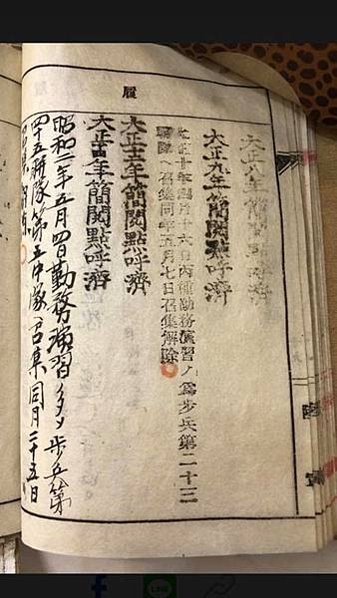 履
大正八年簡閲點呼濟
大正九年簡閲點呼濟
大正十年四月十六日丙種勤務演習ノ爲步兵第二十三
聯隊ニ召集同年五月七日召集解除
大正十二年簡閲點呼濟
大正十四年簡閲點呼濟
昭和二年五月四日勤務演習ノタメ步兵第
四十五聯隊第五中隊ニ召集同月二十五日
召集解除